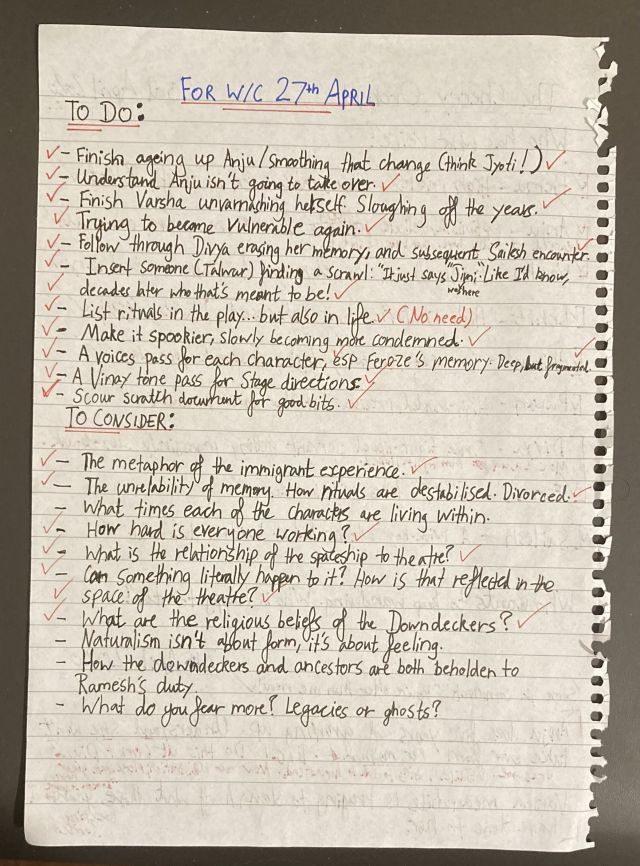 FOR W/C 27th APRIL
TO DO:
- Finish ageing up Anju/Smoothing that change (think Jyoti!)
- Understand Anju isn't going to take over.
- Finish Varsha unvarnishing herself Sloughing off the years.
Trying to become vulnerable again.
- Follow through Divya erasing her memory, and subsequent Sailesh encounter.
- Insert someone (Talwar) finding a scrawl: "It just says "Jimi was here". Like I'd know,
decades later who that's meant to be!
- List rituals in the play... but also in life. (No need)
- Make it spookier, slowly becoming more condemned.
- A voices pass for each character, esp Feroze's memory. Deep, but fragmented.
- A Vinay tone pass for Stage directions.
- Scour scratch document for good bits.
TO CONSIDER:
- The metaphor of the immigrant experience.
- The unrelability of memory. How rituals are destabilised. Divorced.
- What times each of the characters are living within.
- How hard is everyone working?
- What is the relationship of the spaceship to theatre?
- Can something literally happen to it? How is that reflected in the
space of the theatre?
- What are the religious beliefs of the Downdeckers?
- Naturalism isn't about form, it's about feeling.
- How the downdeckers and ancestors are both beholden to
Ramesh's duty
- What do you fear more? Legacies or ghosts?